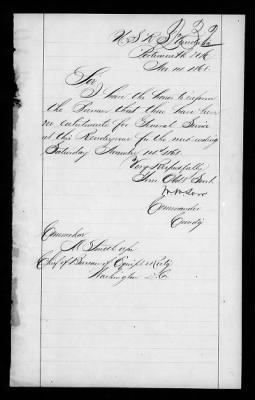 U.S.R.S
Portsmouth N.H.
Nov 14 1868
Sir
I have the honor to inform
the Bureau that there have been
no enlistments for General Service
at the Rendezvous for the week ending
Saturday November 14th 1868
Very Respectfully
Your Obdt Servt
Commander
Comdg
Commodore
M Smith USN
Chief of Bureau of Equipt & Rectg
Washington D.C.